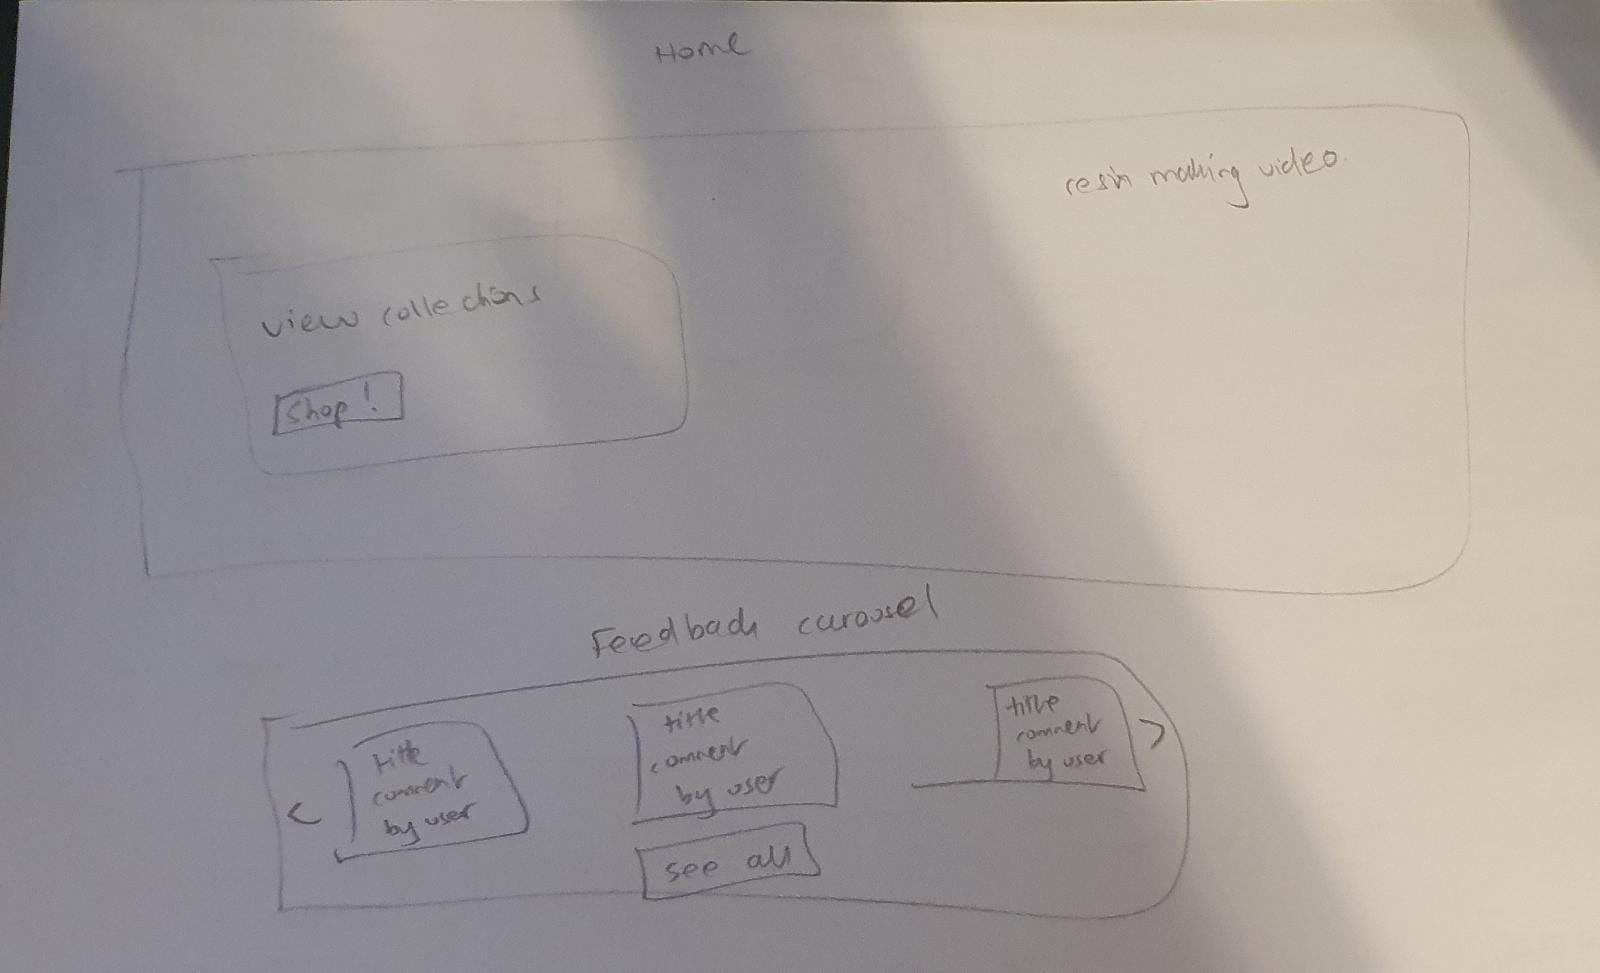 Home
resin making video.
view collections
Shop!
Feedback carousel
<
title
comment
by user
title
comment
by user
title
comment
by user
>
see all